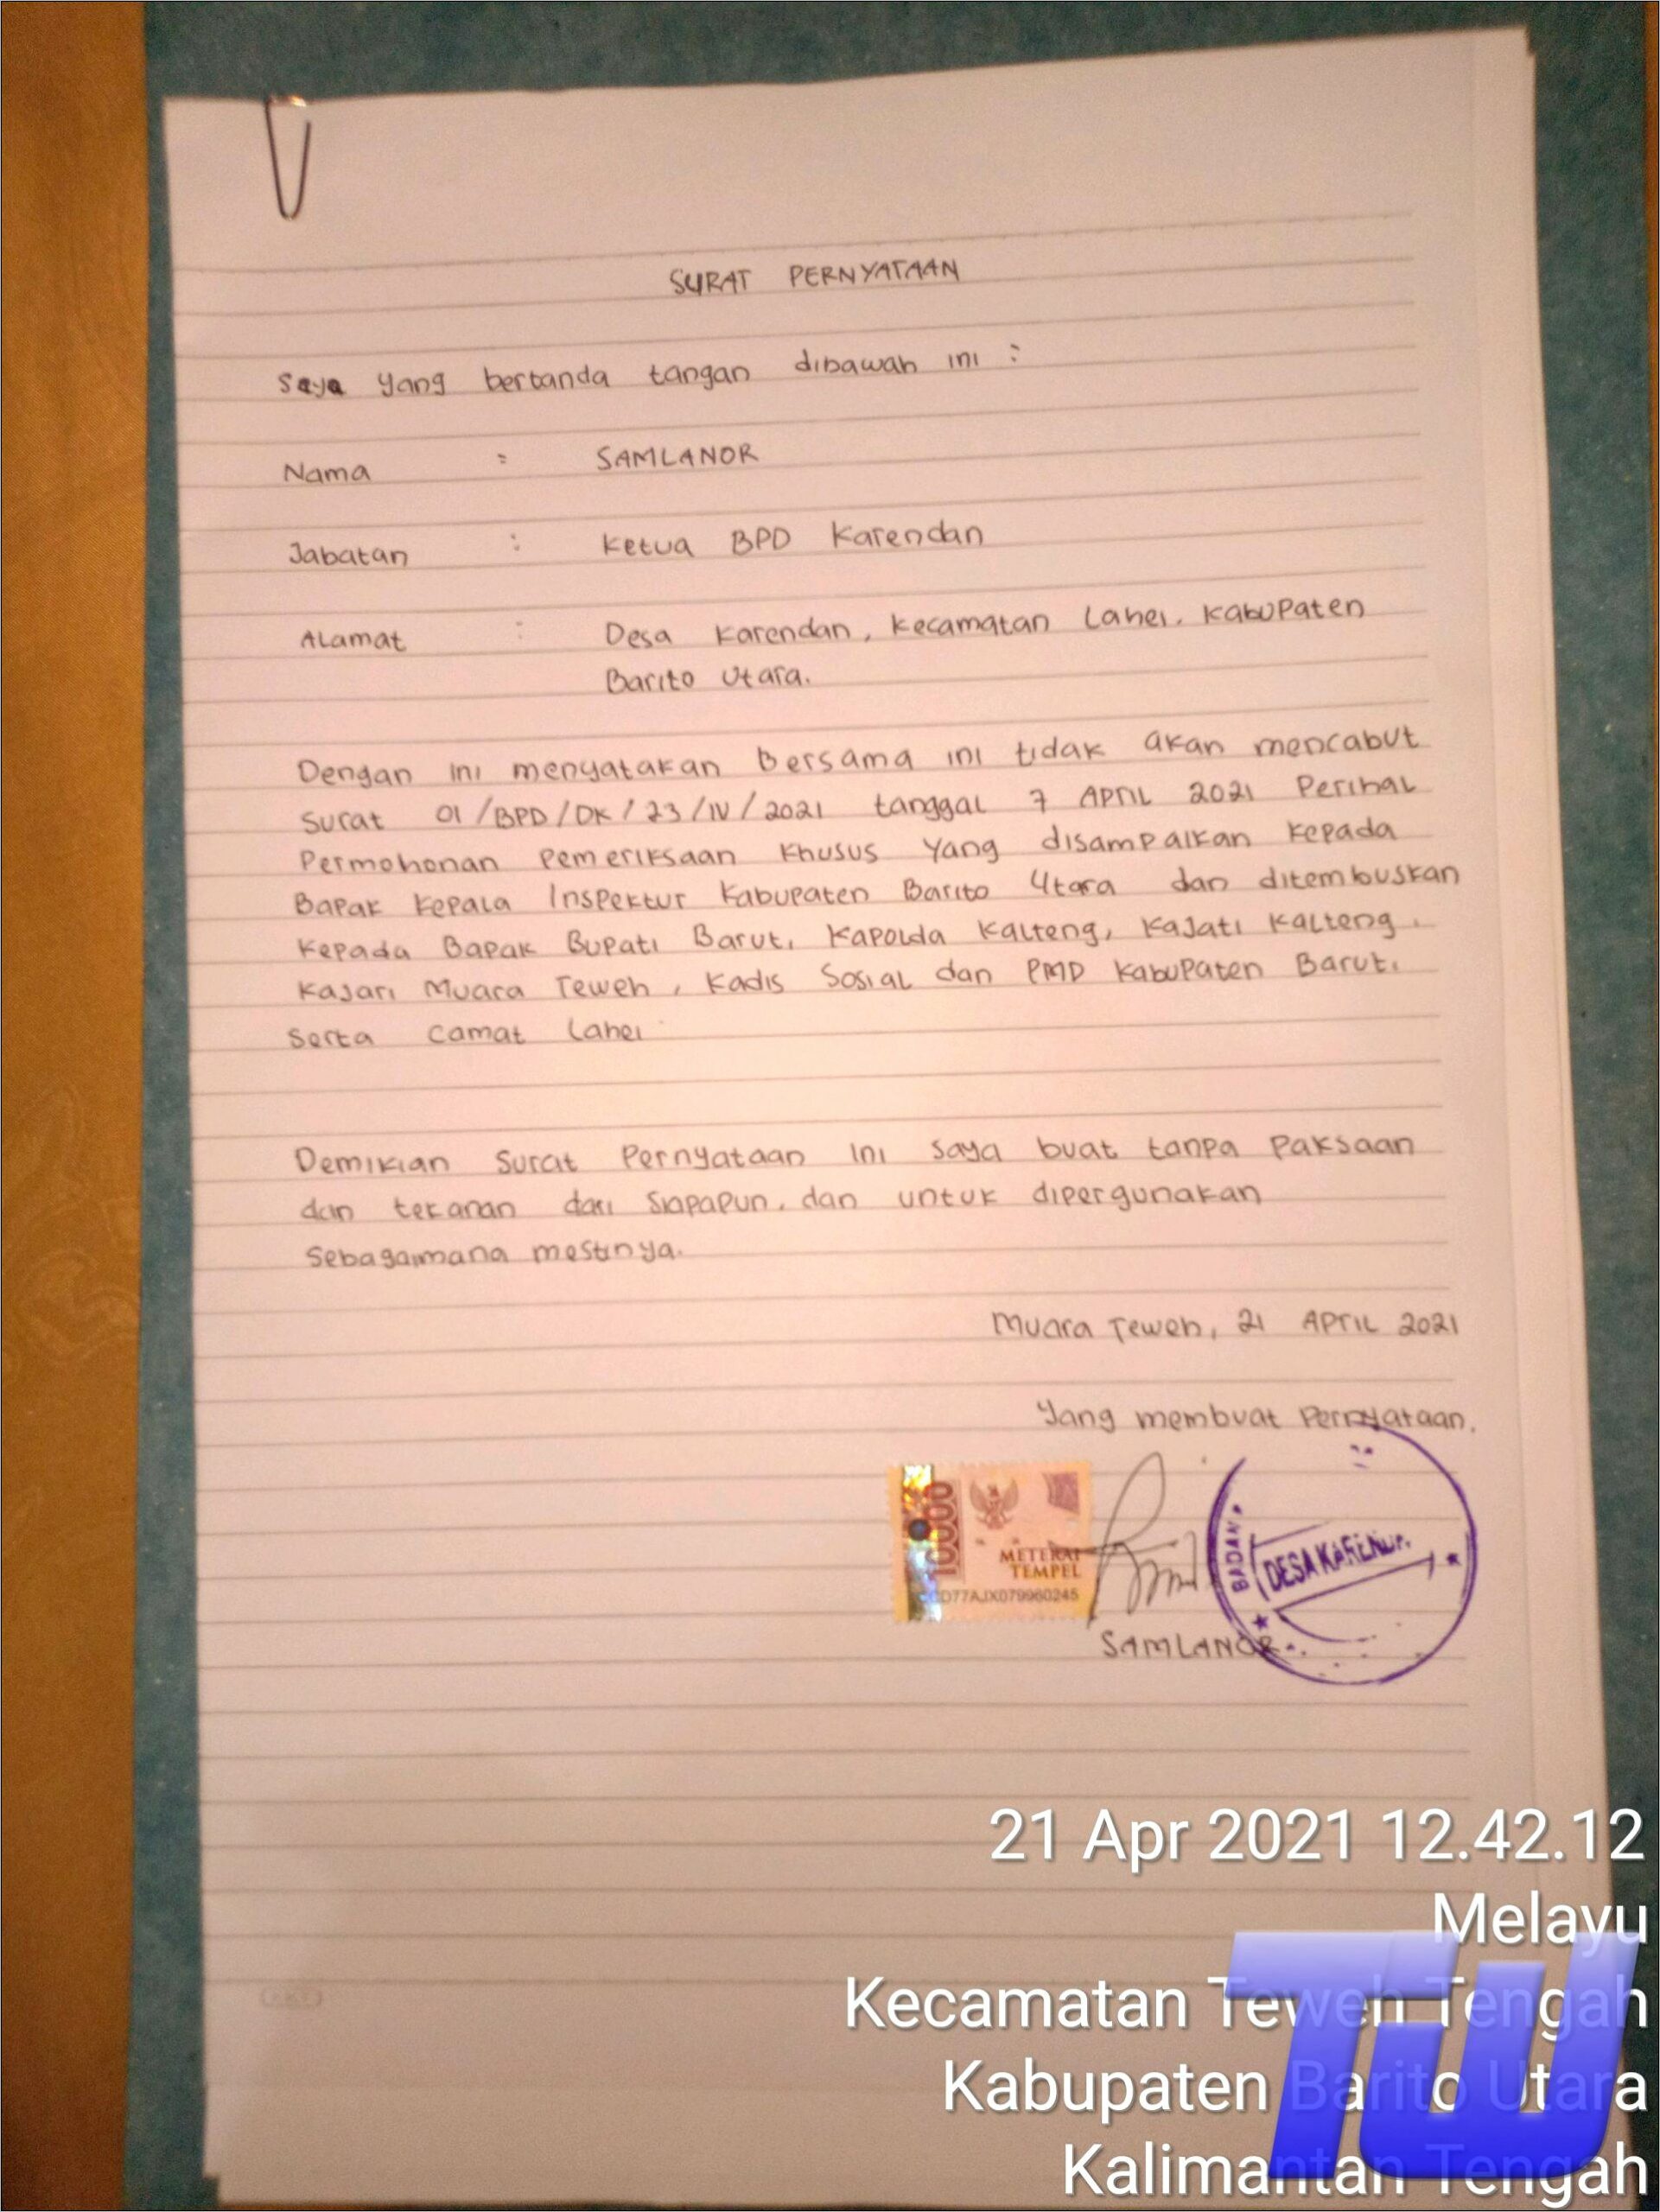 SURAT PERNYATAAN
Saya yang bertanda tangan dibawah ini :
Nama : SAMLANOR
Jabatan : Ketua BPD Karendan
Alamat : Desa Karendan, Kecamatan Lahei, Kabupaten
Barito Utara.
Dengan ini menyatakan Bersama ini tidak akan mencabut
Surat 01/BPD/DK/23/IV/2021 tanggal 7 APRIL 2021 Perihal
Permohonan Pemeriksaan Khusus Yang disampaikan kepada
Bapak Kepala Inspektur Kabupaten Barito Utara dan ditembuskan
Kepada Bapak Bupati Barut, Kapolda Kalteng, Kajati Kalteng,
Kajari Muara Teweh, Kadis Sosial dan PMD Kabupaten Barut,
Serta Camat Lahei
Demikian Surat Pernyataan ini saya buat tanpa Paksaan
dan tekanan dari Siapapun, dan untuk dipergunakan
Sebagaimana mestinya.
Muara Teweh, 21 APRIL 2021
Yang membuat Pernyataan.
10000
METERAI
TEMPEL
D77AJX079960245
BADAN
DESA KAREND
SAMLANOR
21 Apr 2021 12.42.12
Melayu
Kecamatan Teweh Tengah
Kabupaten Barito Utara
Kalimantan Tengah
TU